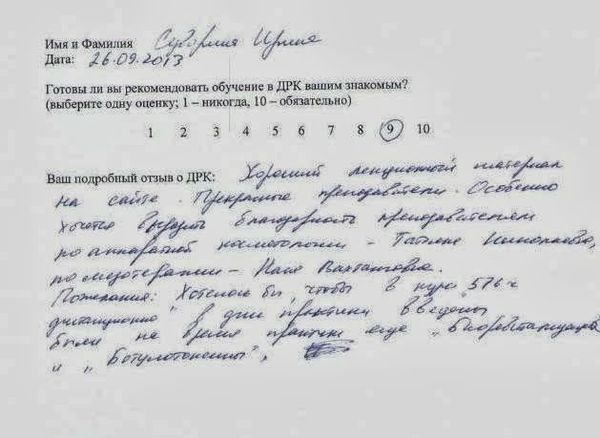 Имя и Фамилия Ирина
Дата: 26.09.2013
Готовы ли вы рекомендовать обучение в ДРК вашим знакомым?
(выберите одну оценку; 1 – никогда, 10 – обязательно)
1 2 3 4 5 6 7 8 9 10
Ваш подробный отзыв о ДРК: Хороший лекционный материал
на сайте. Прекрасные преподаватели. Особенно
хочется выразить благодарность преподавателям
по аппаратной косметологии – Татьяне Николаевне,
по мезотерапии – Вахтанговне.
Пожелания: Хотелось бы, чтобы в курс „576 ч
дистанционно" в дни практики введены
были на время практики еще „Биоревитализация"
и „Ботулотоксины",